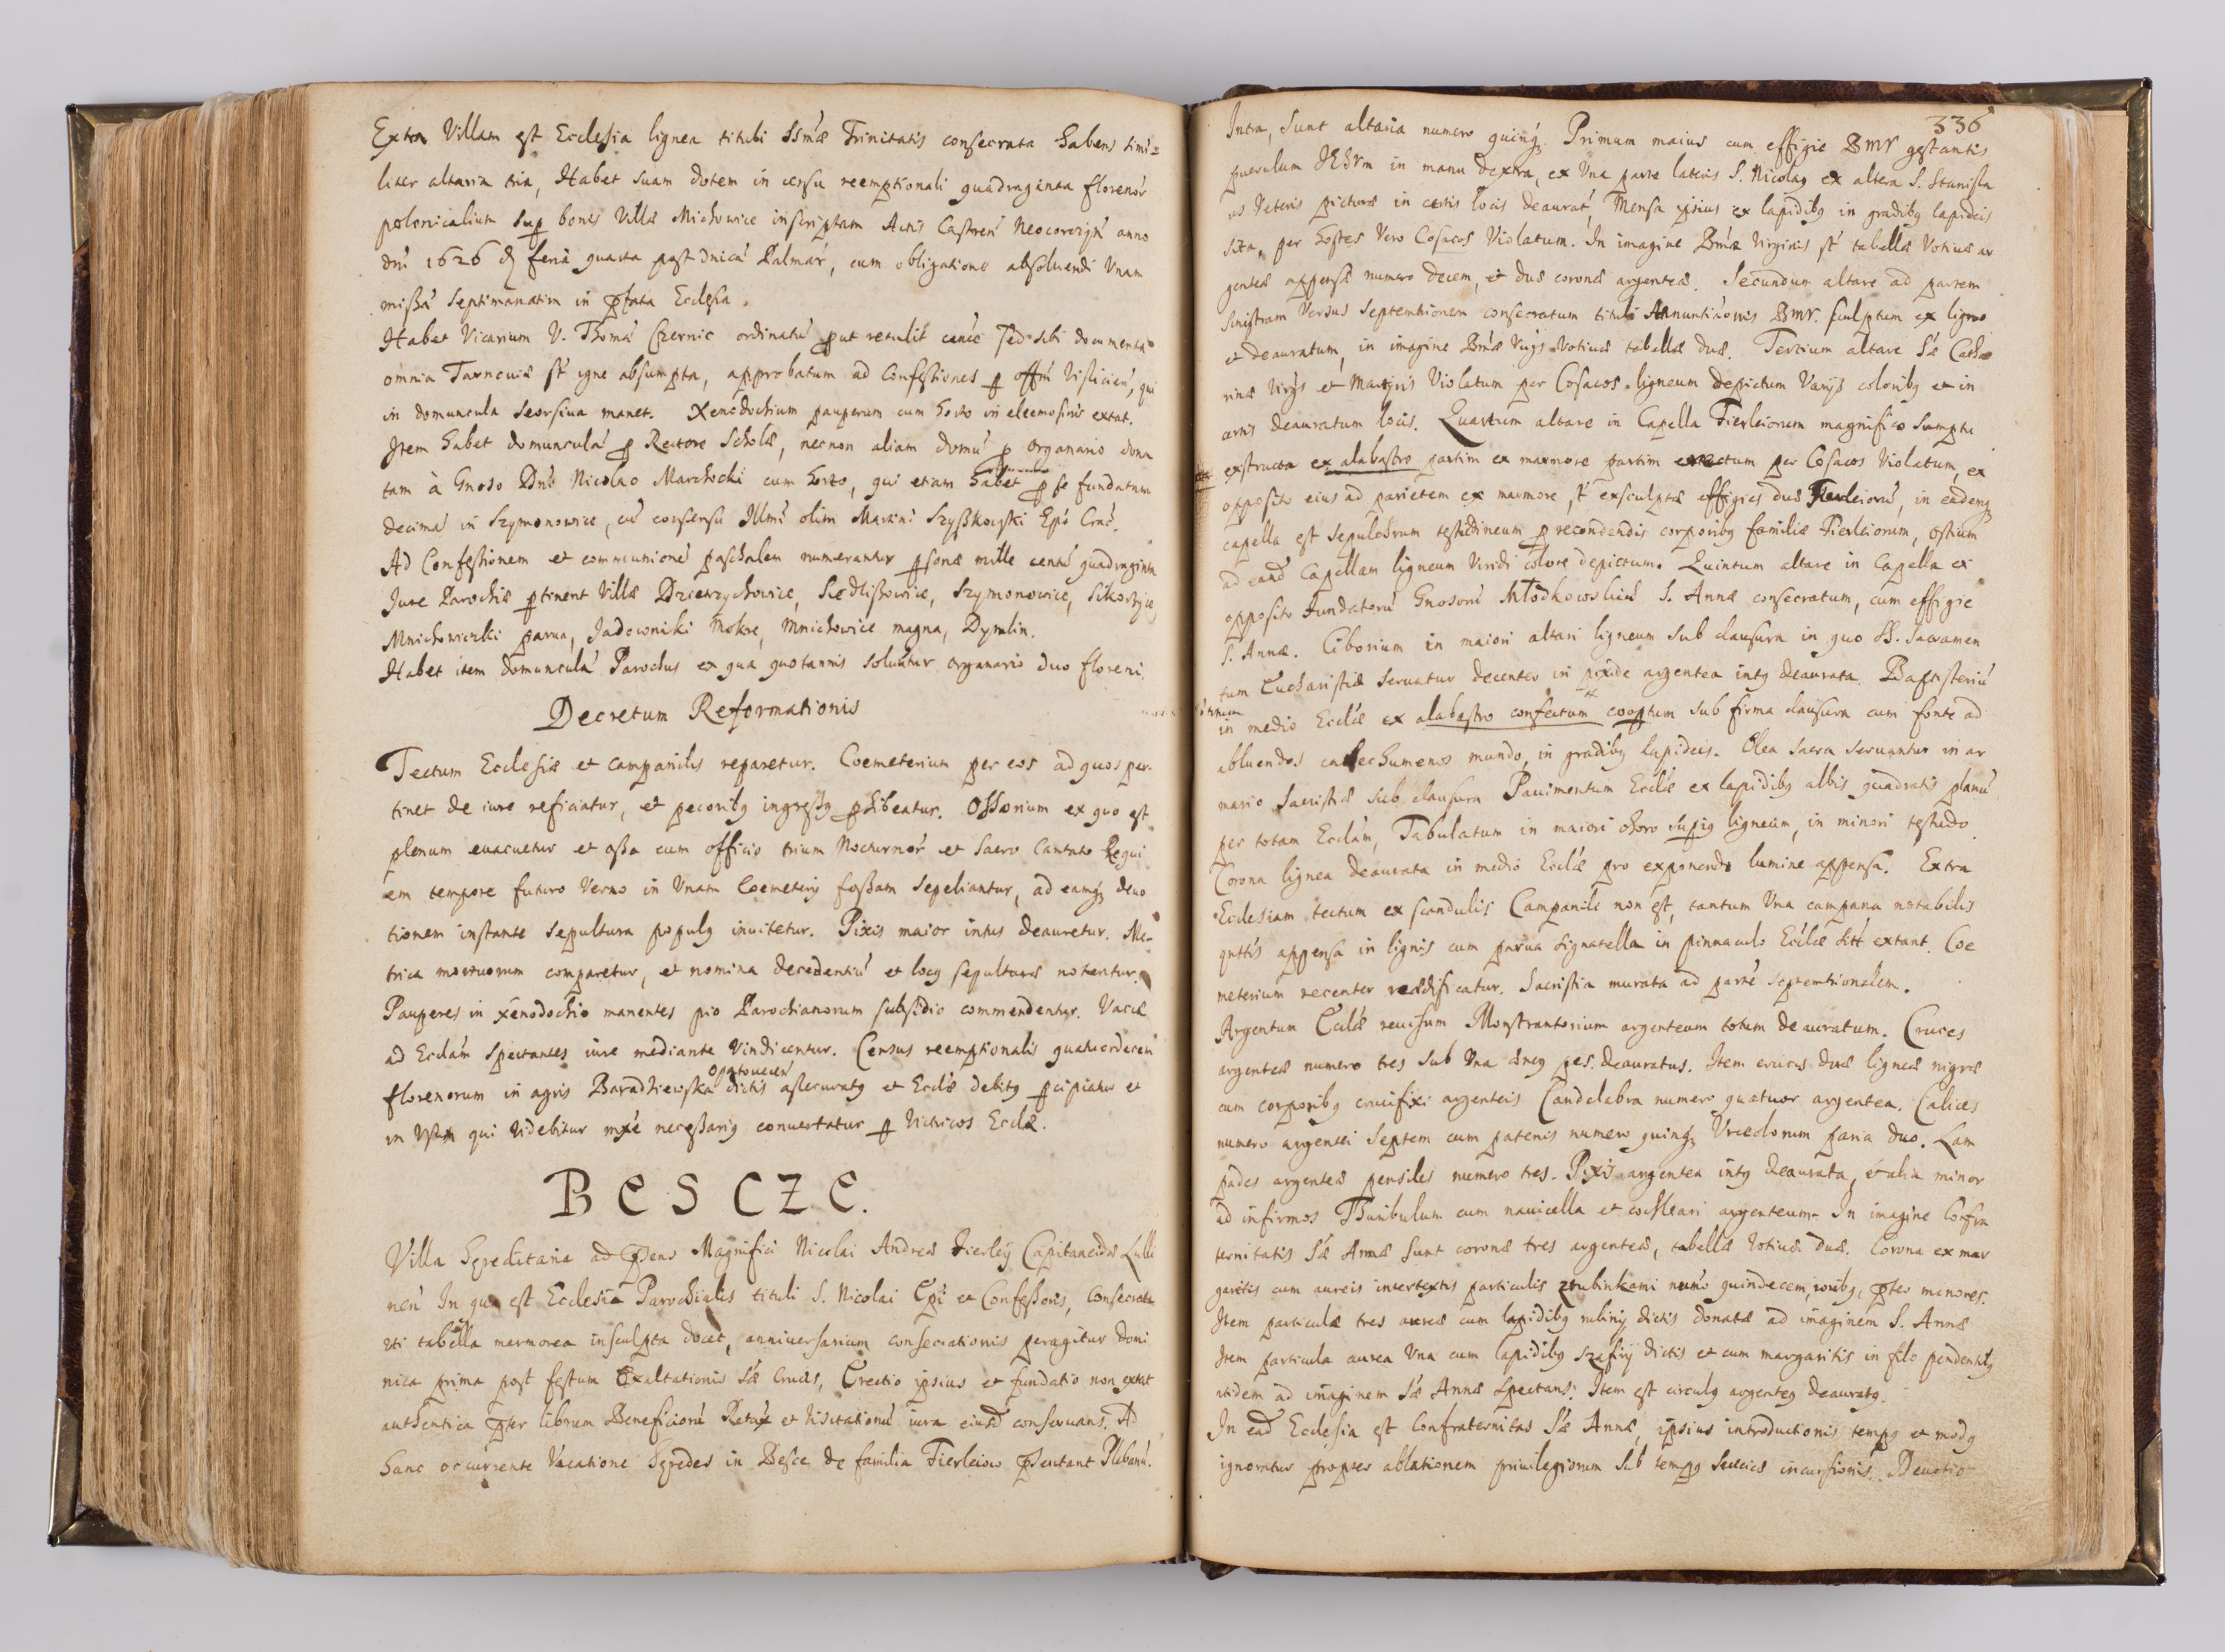 Extra Villam est Ecclesia lignea tituli SSmæ Trinitatis consecrata habens simi=
liter altaria tria, Habet suam dotem in censu reemptionali quadraginta florenor
polonicalium sup bonis Villæ Michowice inscriptam Actis Castren Neocorczyn anno
dni 1626 feria quarta post dnica Palmar, cum obligatione absoluendi Vnam
missã Septimanatim in pfata Ecclesia.
Habet Vicarium V. Thomã Czernic ordinatũ put retulit sed sibi documenta
omnia Tarnouiæ st igne absumpta, approbatum ad Confessiones p offm Visliciens, qui
in domuncula seorsiua manet. Xenodochium pauperum cum horto in eleemosinis extat.
Item habet domunculã p Rectore Scholæ, necnon aliam domũ p organario dona
tam à Gnoso Dno Nicolao Marchocki cum horto, qui etiam habet p se fundatam
decimã in Szymonowice, cũ consensu Illmi olim Martini Szyszkowski Epi Crac.
Ad Confessionem et communionẽ paschalem numerantur psonæ mille centũ quadraginta
Iure Parochiæ ptinent Villæ Dzierzychowice, Siedliszowice, Szymonowice, Sikorzyce
Mnichowiczki parua, Jadowniki Mokre, Mnichowice magna, Dymlin.
Habet item domunculã Parochus ex qua quotannis soluũtur organario duo floreni.
Decretum Reformationis
Tectum Ecclesiæ et campanilis reparetur. Coemeterium per eos ad quos per-
tinet de iure reficiatur, et pecoribq ingressq phibeatur. Ossorium ex quo est
plenum euacuetur et ossa cum officio trium Nocturnor et Sacro Cantato Requi
em tempore futuro Verno in Vnam Coemeterij fossam sepeliantur, ad eamq deuo
tionem instante sepultura populq inuitetur. Pixis maior intus deauretur. Me-
trica mortuorum comparetur, et nomina decedentiũ et locq sepulturæ notentur.
Pauperes in xenodochio manentes pio Parochianorum subsidio commendentur. Vaccæ
ad Ecclam spectantes iure mediante Vindicentur. Census reemptionalis quatuordecem
Opatouecen
florenorum in agris Baradziewska dictis assecuratq et Ecclæ debitq pcipiatur et
in Vsum qui Videbitur mxe necessariq conuertatur p Victricos Ecclæ.
BESCZE.
Villa hæreditaria ad psens Magnifici Nicolai Andreæ Firleij Capitaneidæ Lubli
nen In qua est Ecclesia Parochialis tituli S. Nicolai Epi et Confessoris, Consecrata
Vti tabella marmorea insculpta docet, anniuersarium consecrationis peragitur domi
nica prima post festum Exaltationis Sæ Crucis, Erectio ipsius et fundatio non extat
authentica pter librum Beneficiorũ Retax et Visitationũ iura eiusd conseruans. Ad
hanc occurrente Vacatione hæredes in Besce de familia Firleiow psentant Plebanũ.
336
Intra, sunt altaria numero quinq. Primum maius cum effigie BMV gestantis
puerulum IEhVm in manu dextra, ex Vna parte lateris S. Nicolaq ex altera S. Stanisla
us Veteris picturæ in certis locis deaurat, Mensa ipsius ex lapidibq in gradibq lapideis
sita, per hostes Vero Cosacos Violatum. In imagine Bmæ Virginis st tabellæ Votiuæ ar
genteæ appensæ numero decem, et duæ coronæ argenteæ. Secundum altare ad partem
sinistram Versus Septemtrionem consecratum tituli Annuntiaonis BMV. sculptum ex ligno
et deauratum, in imagine Bmæ Virgs Votiuæ tabellæ duæ. Tertium altare Sæ Catha
rinæ Virgs et Martyris Violatum per Cosacos ligneum depictum Varijs coloribq et in
certis deauratum locis. Quartum altare in Capella Fierleiorum magnifico sumptu
exstructa ex alabastro partim ex marmore partim erectum per Cosacos Violatum, ex
opposito eius ad parietem ex marmore, st exsculptæ effigies duæ Fierleiorũ, in eademq
capella est sepulchrum testudineum p recondendis corporibq familiæ Fierleiorum, ostium
ad eand Capellam ligneum Viridi colore depictum. Quintum altare in Capella ex
opposito fundatorũ Gnosorũ Młodkowskich S. Annæ consecratum, cum effigie
S. Annæ. Ciborium in maiori altari ligneum sub clausura in quo SS. Sacramen
tum Eucharistiæ seruatur decenter in pixide argentea intq deaurata. Baptisteriũ
in medio Ecclæ ex alabastro confectum cooptum sub firma clausura cum fonte ad
abluendos catechumenos mundo, in gradibq lapideis. Olea Sacra seruantur in ar
mario Sacristiæ sub clausura Pauimentum Ecclæ ex lapidibq albis quadratis planũ
per totam Ecclam, Tabulatum in maiori choro supiq ligneum, in minori testudo
Corona lignea deaurata in medio Ecclæ pro exponendo lumine appensa. Extra
Ecclesiam tectum ex scandulis Campanile non est, tantum Vna campana notabilis
appensa in lignis cum parua signatella in pinnaculo Ecclæ extant. Coe
meterium recenter reædificatur. Sacristia murata ad partẽ septemtrionalem.
Argentum Ecclæ reuisum Monstrantorium argenteum totum deauratum. Cruces
argenteæ numero tres sub Vna æneq pes deauratus. Item cruces duæ ligneæ nigræ
cum corporibq crucifixi argenteis Candelabra numero quatuor argentea. Calices
numero argentei septem cum patenis numero quinq Vrceolorum paria duo. Lam
pades argenteæ pensiles numero tres. Pixis argentea intq deaurata, et alia minor
ad infirmos Thuribulum cum nauicella et cochleari argenteum. In imagine Confra
ternitatis Sæ Annæ sunt coronæ tres argenteæ, tabellæ Votiuæ duæ. Corona ex mar
garitis cum aureis intertextis particulis zrubinkami numo quindecem, pter minores.
Item particulæ tres aureæ cum lapidibq rubinij dictis donatæ ad imaginem S. Annæ
Item particula aurea Vna cum lapidibq szafirij dictis et cum margaritis in filo pendentibq
itidem ad imaginem Sæ Annæ spectans. Item est circulq argenteq deauratq.
In ead Ecclesia est Confraternitas Sæ Annæ, ipsius introductionis tempq et modq
ignoratur propter ablationem priuilegiorum sub tempq Sueciæ incursionis. Deuotio